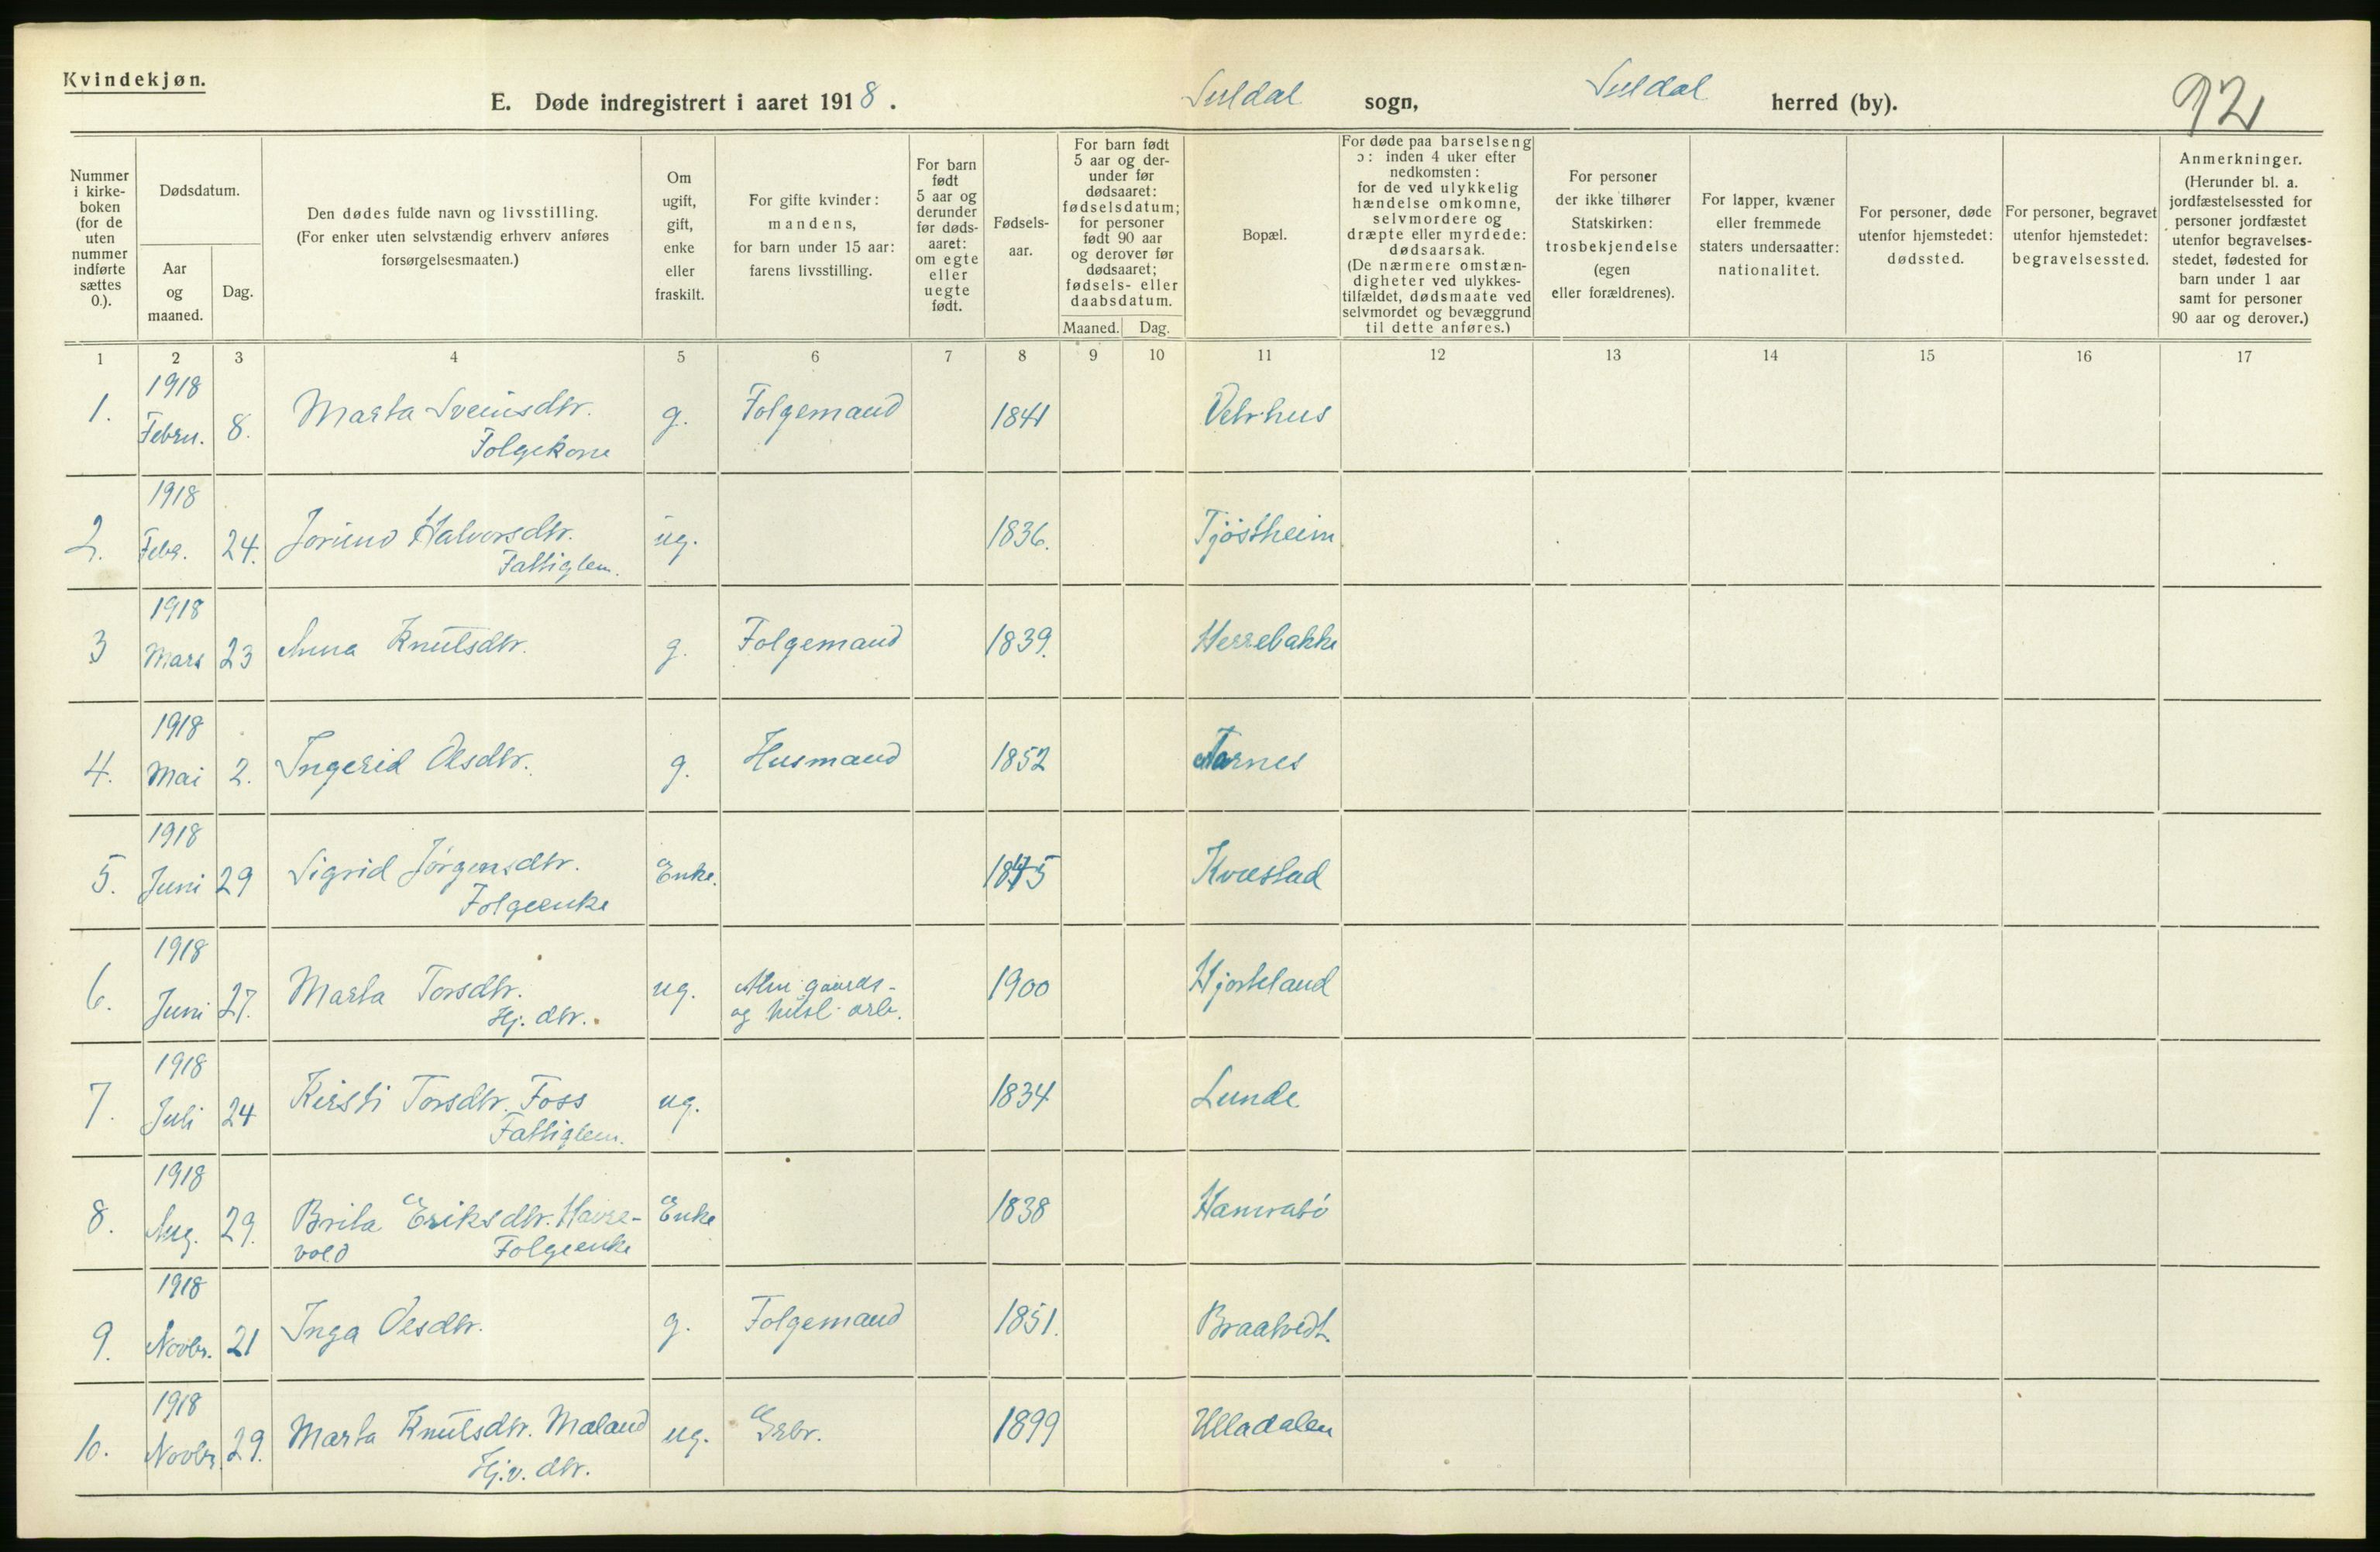 Kvindekjøn.
E. Døde indregistrert i aaret 1918. Suldal sogn, Suldal herred (by).
92
Nummer
i kirke-
boken
(for de
uten
nummer
indførte
sættes
0.).
Dødsdatum.
Aar
og
maaned.
Dag.
Den dødes fulde navn og livsstilling.
(For enker uten selvstændig erhverv anføres
forsørgelsesmaaten.)
Om
ugift,
gift,
enke
eller
fraskilt.
For gifte kvinder:
mandens,
for barn under 15 aar:
farens livsstilling.
For barn
født
5 aar og
derunder
før døds-
aaret:
om egte
eller
uegte
født.
Fødsels-
aar.
For barn født
5 aar og der-
under før
dødsaaret:
fødselsdatum;
for personer
født 90 aar
og derover før
dødsaaret;
fødsels- eller
daabsdatum.
Maaned. Dag.
Bopæl.
For døde paa barselseng
ɔ: inden 4 uker efter
nedkomsten:
for de ved ulykkelig
hændelse omkomne,
selvmordere og
dræpte eller myrdede:
dødsaarsak.
(De nærmere omstæn-
digheter ved ulykkes-
tilfældet, dødsmaate ved
selvmordet og bevæggrund
til dette anføres.)
For personer
der ikke tilhører
Statskirken:
trosbekjendelse
(egen
eller forældrenes).
For lapper, kvæner
eller fremmede
staters undersaatter:
nationalitet.
For personer, døde
utenfor hjemstedet:
dødssted.
For personer, begravet
utenfor hjemstedet:
begravelsessted.
Anmerkninger.
(Herunder bl. a.
jordfæstelsessted for
personer jordfæstet
utenfor begravelses-
stedet, fødested for
barn under 1 aar
samt for personer
90 aar og derover.)
1 2 3 4 5 6 7 8 9 10 11 12 13 14 15 16 17
1918
1. Febru. 8. Marta Sveinsdtr. g. Folgemand 1841 Vetrhus
Folgekone
1918
2. Febr. 24. Jorund Halvorsdtr. ug. 1836. Tjöstheim
Fattiglem.
1918
3 Mars 23 Anna Knutsdtr. g. Folgemand 1839. Herrebakke
1918
4. Mai 2. Ingerid Olsdtr. g. Husmand 1852 Aarnes
1918
5. Juni 29 Sigrid Jörgensdtr. Enke. 1845 Kvæstad
Folgeenke
1918
6. Juni 27. Marta Torsdtr. ug. Alm. gaards- 1900 Hjorteland
Hj. dtr. og husl. arb.
1918
7. Juli 24 Kirsti Torsdtr. Foss ug. 1834 Lunde
Fattiglem.
1918
8. Aug. 29. Brita Eriksdtr. Havre- Enke 1838 Hamrabö
vold Folgeenke
1918
9. Novbr. 21 Inga Olsdtr. g. Folgemand 1851. Braatvedt.
1918
10. Novbr. 29. Marta Knutsdtr. Mæland ug. Grbr. 1899 Ulladalen
Hj.v. dtr.